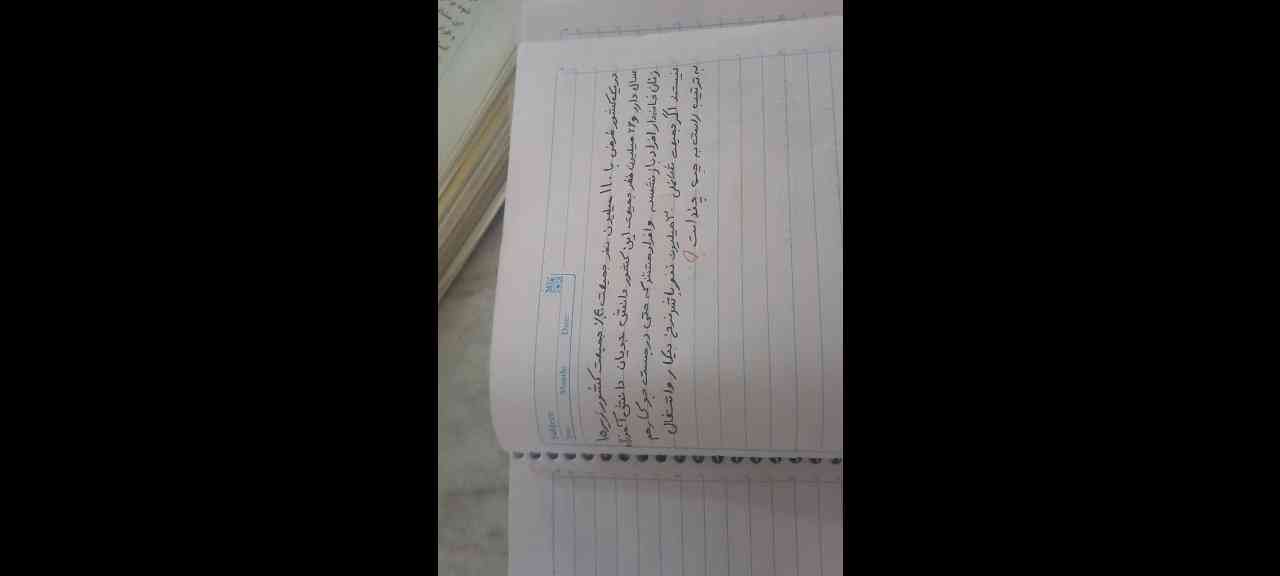 Subject:
Month: Date:
در یک کشور فرضی با ۱۱۰ میلیون نفر جمعیت ۴۰٪ جمعیت کشور زیر ۱۵
سال دارد و ۲۴ میلیون نفر جمعیت این کشور دانش جویان دانش آموزان
زنان خانه دار افراد بازنشسته و افراد هستند که حتی در جست جو کار هم
نیستند اگر جمعیت شاغل ۳۰ میلیون نفر باشد نرخ بیکار و اشتغال
به ترتیب راست به چپ چند است؟